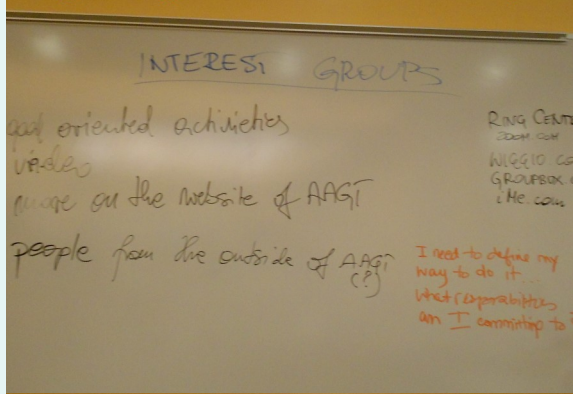 INTEREST GROUPS
goal oriented activieties
video
more on the website of AAGT
people from the outside of AAGT
(?)
RING CENT
ZOOM.COM
WIGGIO CO
GROUPBOX.
iMe.com
I need to define my
way to do it...
what responsabilities
am I committing to